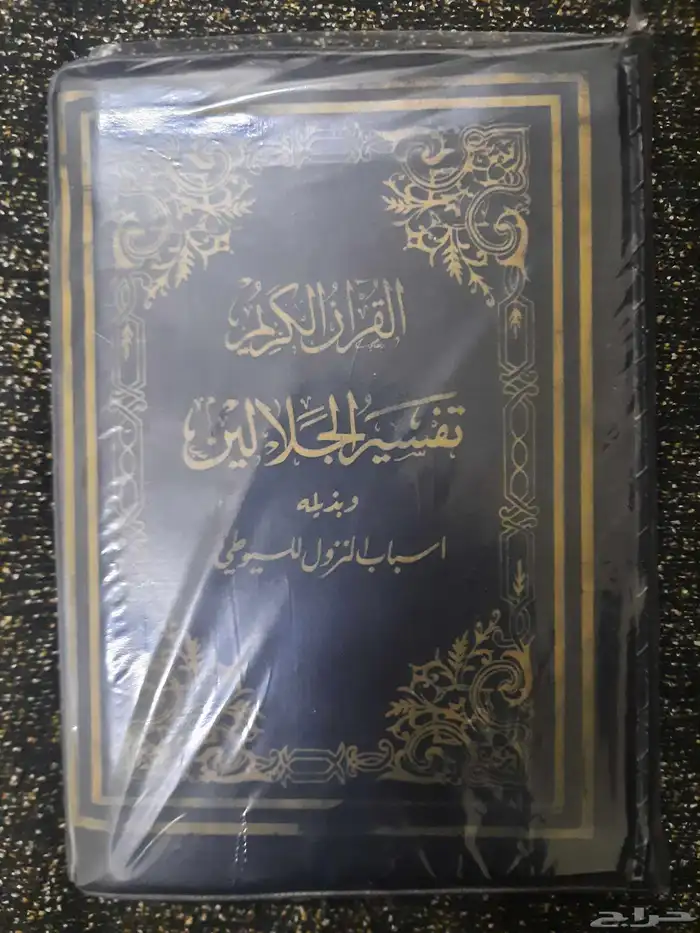 القرآن الكريم
تفسير الجلالين
وبذيله
اسباب النزول للسيوطي
حراج